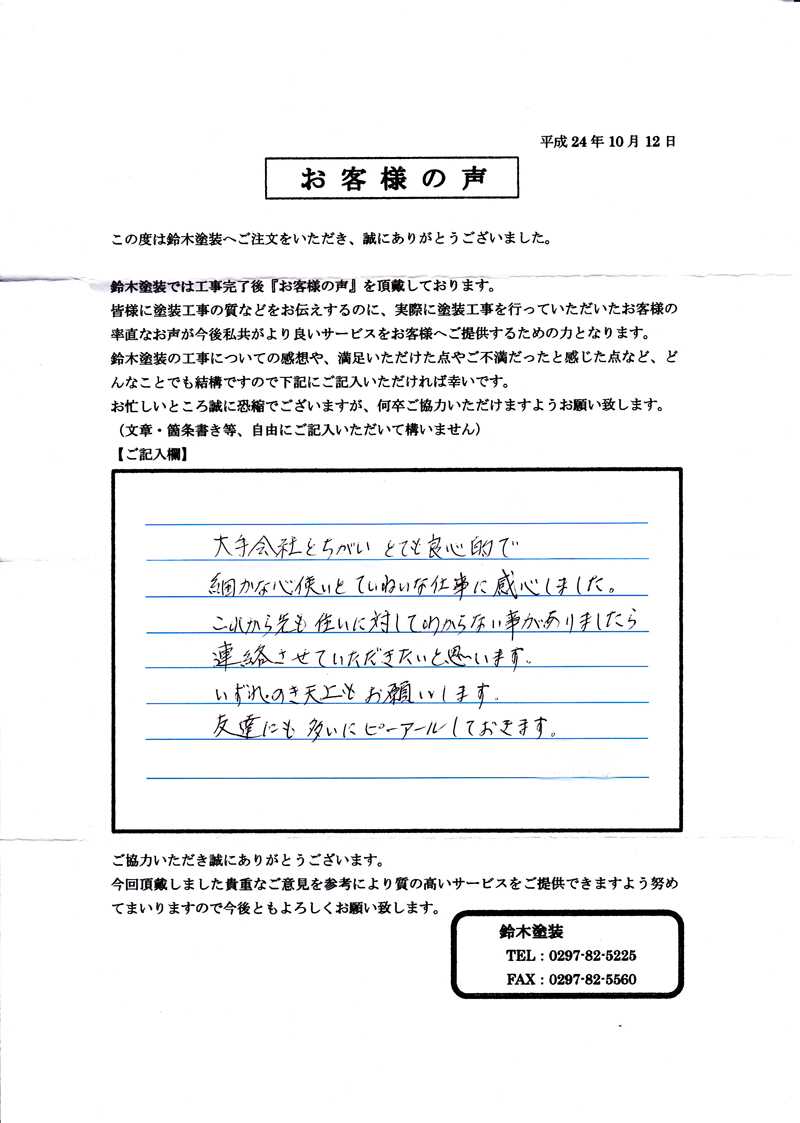 平成24年10月12日
お客様の声
この度は鈴木塗装へご注文をいただき、誠にありがとうございました。
鈴木塗装では工事完了後『お客様の声』を頂戴しております。
皆様に塗装工事の質などをお伝えするのに、実際に塗装工事を行っていただいたお客様の
率直なお声が今後私共がより良いサービスをお客様へご提供するための力となります。
鈴木塗装の工事についての感想や、満足いただけた点やご不満だったと感じた点など、ど
んなことでも結構ですので下記にご記入いただければ幸いです。
お忙しいところ誠に恐縮でございますが、何卒ご協力いただけますようお願い致します。
（文章・箇条書き等、自由にご記入いただいて構いません）
【ご記入欄】
大手会社とちがい とても良心的で
細かな心使いとていねいな仕事に感心しました。
これから先も住いに対してわからない事がありましたら
連絡させていただきたいと思います。
いずれ のき天上もお願いします。
友達にも多いにピーアールしておきます。
ご協力いただき誠にありがとうございます。
今回頂戴しました貴重なご意見を参考により質の高いサービスをご提供できますよう努め
てまいりますので今後ともよろしくお願い致します。
鈴木塗装
TEL：0297-82-5225
FAX：0297-82-5560